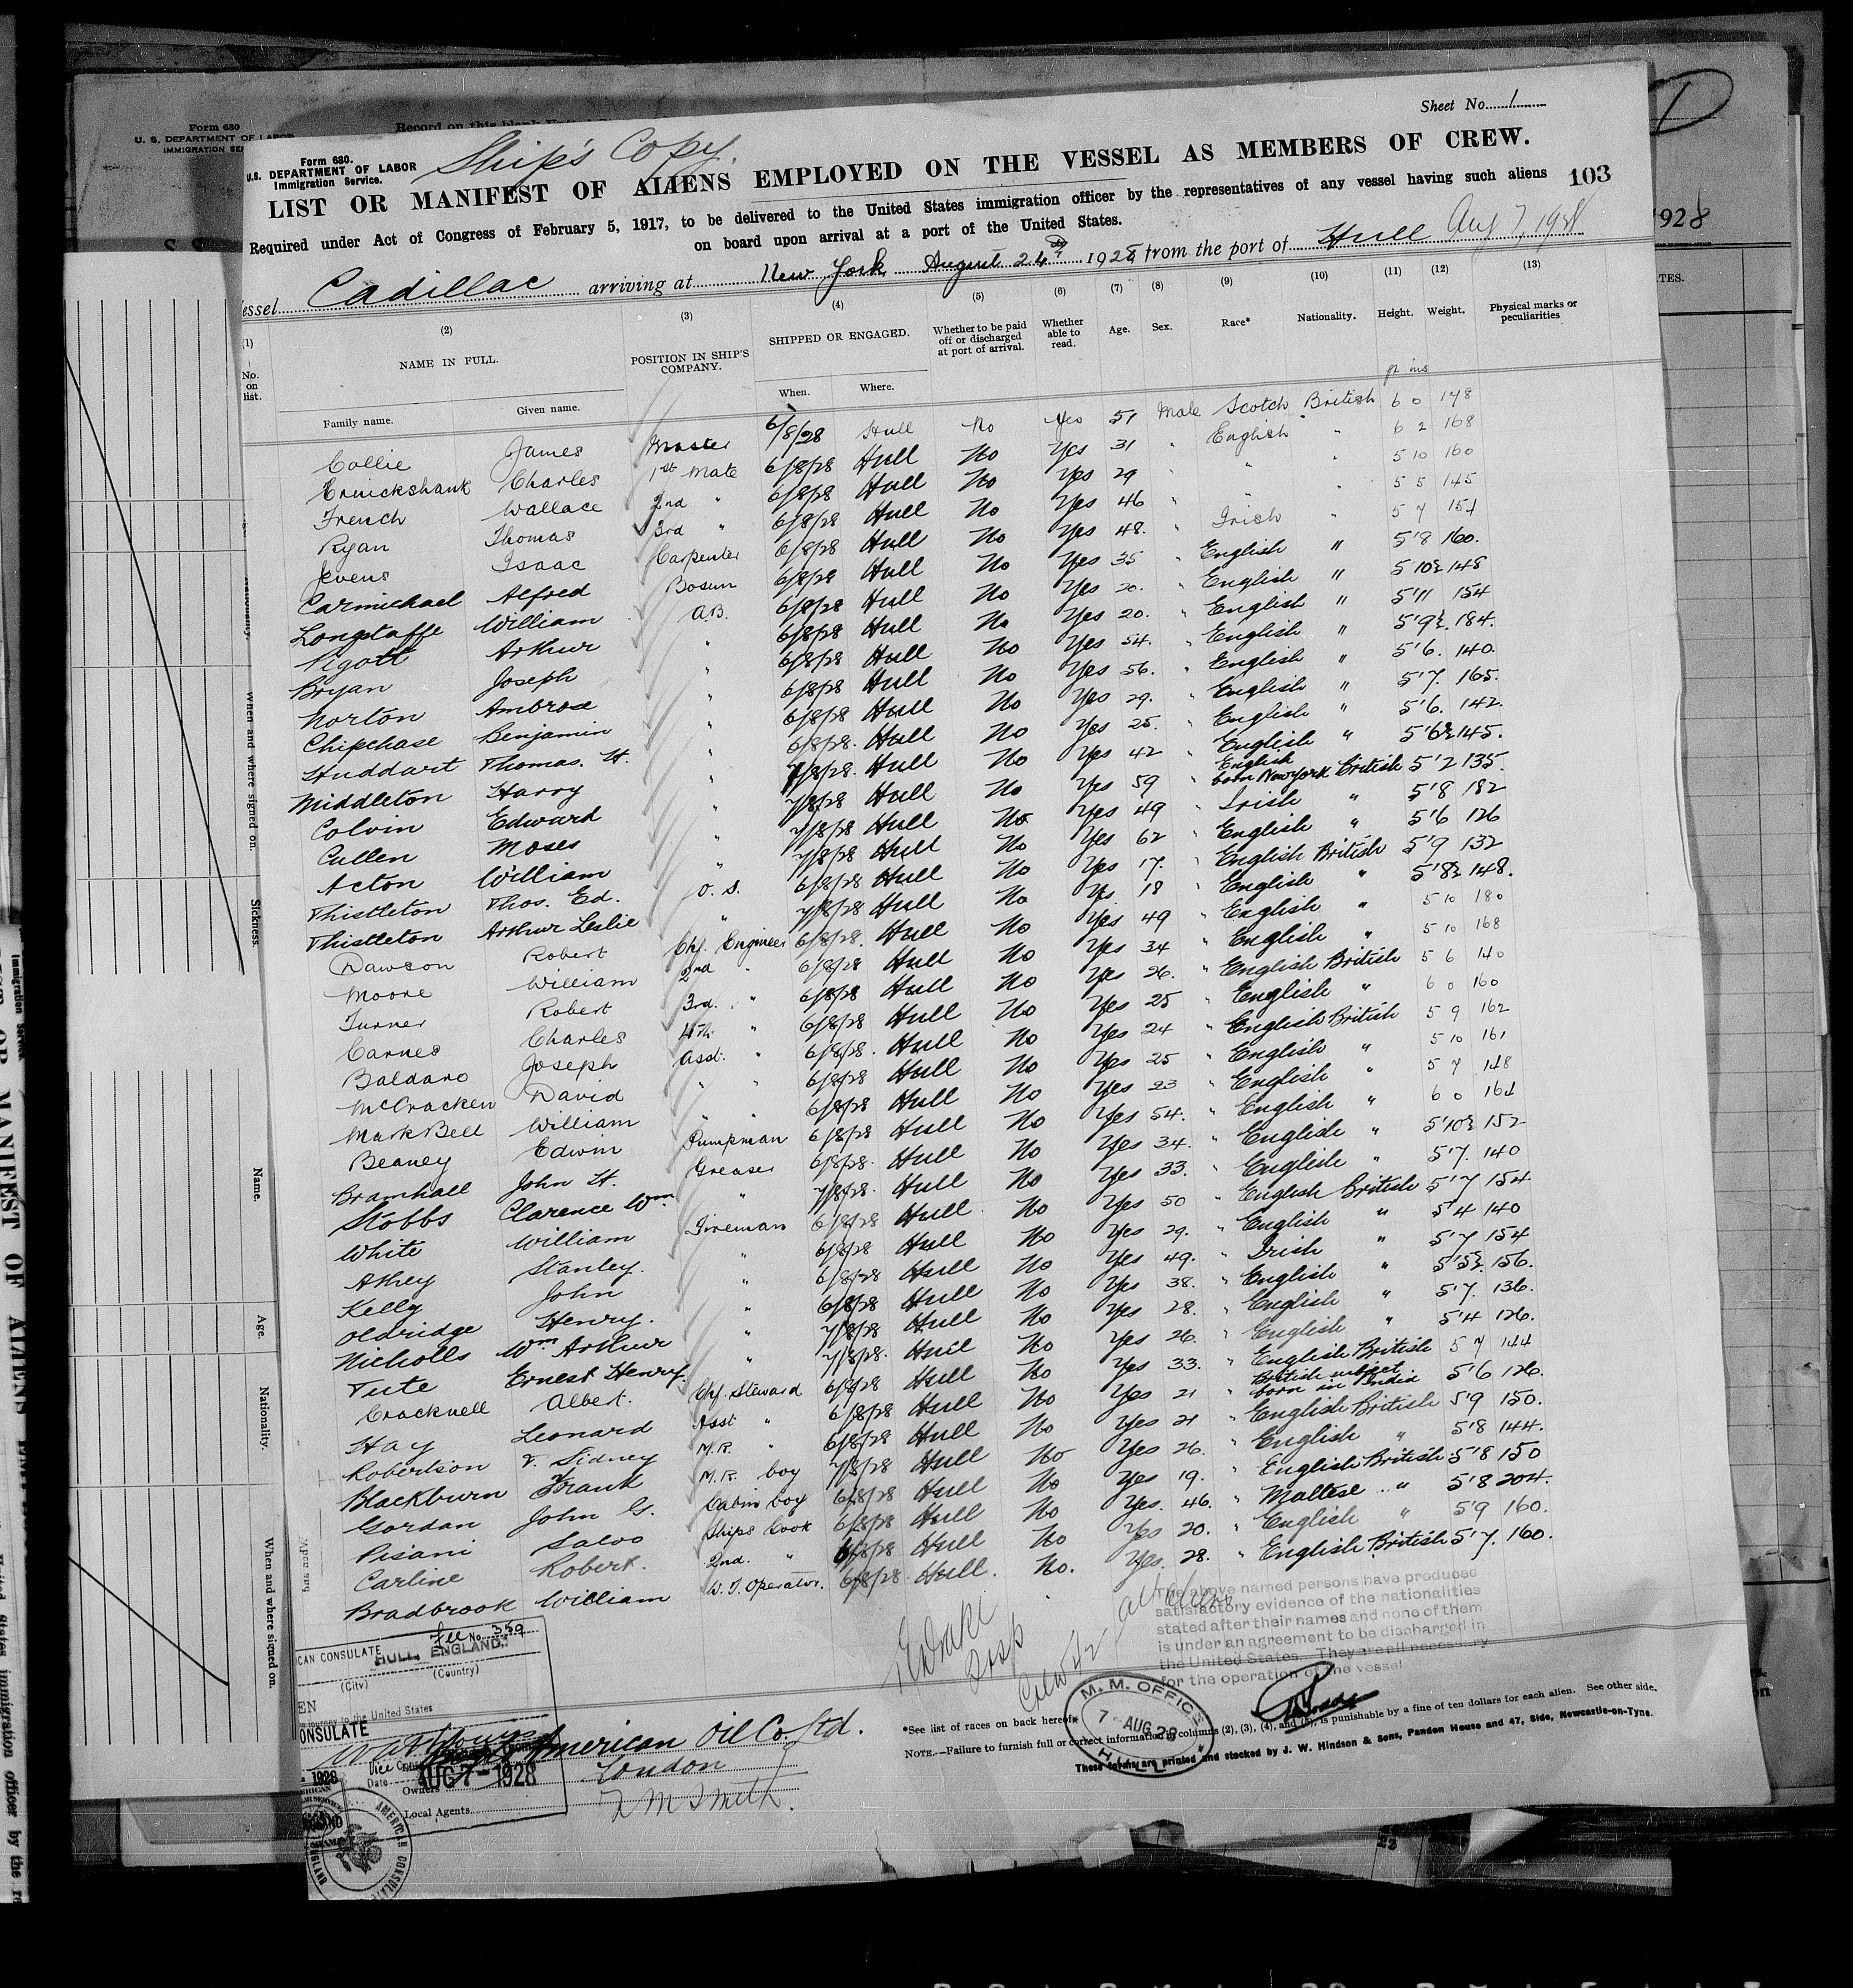 Sheet No. 1
Form 680.
U.S. DEPARTMENT OF LABOR
Immigration Service.
Ship's Copy.
LIST OR MANIFEST OF ALIENS EMPLOYED ON THE VESSEL AS MEMBERS OF CREW.
103
Required under Act of Congress of February 5, 1917, to be delivered to the United States immigration officer by the representatives of any vessel having such aliens
on board upon arrival at a port of the United States.
essel Cadillac arriving at New York August 24th 1928, from the port of Hull Aug 7, 1928
(1) (2) (3) (4) (5) (6) (7) (8) (9) (10) (11) (12) (13)
No. on list. NAME IN FULL. POSITION IN SHIP'S COMPANY. SHIPPED OR ENGAGED. Whether to be paid off or discharged at port of arrival. Whether able to read. Age. Sex. Race* Nationality. Height. Weight. Physical marks or peculiarities
Family name. Given name. When. Where. ft ins
Collie James Master 6/8/28 Hull No Yes 51 Male Scotch British 6 0 178
Cruickshank Charles 1st Mate 6/8/28 Hull No Yes 31 " English " 6 2 168
French Wallace 2nd " 6/8/28 Hull No Yes 29 " " " 5 10 160
Ryan Thomas 3rd " 6/8/28 Hull No Yes 46 " " " 5 5 145
Jevens Isaac Carpenter 6/8/28 Hull No Yes 48. " Irish " 5 7 154
Carmichael Alfred Bosun 6/8/28 Hull No Yes 35 " English " 5'8 160.
Longstaffe William A.B. 6/8/28 Hull No Yes 20. " English " 5 10½ 148
Pigott Arthur " 6/8/28 Hull No Yes 20. " English " 5'11 154
Bryan Joseph " 6/8/28 Hull No Yes 54. " English " 5'9½. 184.
Norton Ambrose " 6/8/28 Hull No Yes 56. " English " 5'6. 140.
Chipchase Benjamin " 6/8/28 Hull No Yes 29. " English " 5'7. 165.
Huddart Thomas. H. " 6/8/28. Hull No Yes 25. " English " 5'6. 142.
Middleton Harry " 7/8/28. Hull No Yes 42 " English " 5'6½ 145.
Colvin Edward " 7/8/28 Hull No Yes 59 " English born New York British 5'2 135.
Cullen Moses " 7/8/28 Hull No. Yes 49 " Irish " 5'8 182
Acton William " 7/8/28 Hull No Yes 62 " English " 5'6 126
Thistleton Thos. Ed. O. S. 6/8/28 Hull No Yes 17. " English British 5'9 132
Thistleton Arthur Leslie " 7/8/28 Hull No Yes 18 " English " 5'8½ 148.
Dawson Robert Chf. Engineer 6/8/28. Hull No Yes 49 " English " 5 10 180
Moore William 2nd " 6/8/28 Hull No Yes 34 " English " 5 10 168
Turner Robert 3rd. " 6/8/28 Hull No Yes 26. " English British 5 6 140
Carnes Charles 4th " 6/8/28 Hull No Yes 25 " English " 6 0 160
Baldaro Joseph Asst. " 6/8/28. Hull No Yes 24 " English British 5 9 162
McCracken David " " 6/8/28 Hull No Yes 25 " English " 5 10 161
Mark Bell William " " 6/8/28 Hull No Yes 23 " English " 5 7 148
Beaney Edwin Pumpman 6/8/28 Hull No Yes 54. " English " 6 0 164
Bramhall John H. Greaser 6/8/28. Hull No Yes 34. " English " 5'10½ 152
Stobbs Clarence Wm " 7/8/28. Hull No Yes 33. " English " 5'7. 140
White William Fireman 6/8/28 Hull No Yes 50 " English British 5'7 154
Athey Stanley. " 6/8/28 Hull No Yes 29. " English " 5'4 140
Kelly John " 6/8/28 Hull No Yes 49. " Irish " 5'7 154
Oldridge Henry. " 6/8/28 Hull No Yes 38. " English " 5'5½. 156.
Nicholls Wm Arthur " 7/8/28 Hull No Yes 28. " English " 5'7. 136.
Tute Ernest Henry. " 7/8/28. Hull No Yes 26. " English " 5'4 126.
Cracknell Albert. Chf. Steward 6/8/28 Hull No Yes 33. " English British 5 7 144
Hay Leonard Asst " 6/8/28 Hull No Yes 21 " British subject born in India 5'6 126.
Robertson V. Sidney M.R. " 6/8/28 Hull No Yes 21 " English British 5'9 150.
Blackburn Frank M.R. boy 7/8/28 Hull No Yes 26. " English " 5'8 144.
Gordan John G. Cabin boy 6/8/28 Hull No Yes 19. " English British 5'8 150
Pisani Salvo Ships Cook 6/8/28 Hull No Yes. 46. " Maltese " 5'8 204.
Carline Robert. 2nd. " 6/8/28 Hull No Yes 20. " English " 5'9 160.
Bradbrook William W.T. Operator. 6/8/28. Hull. No. Yes. 28. " English British 5'7. 160.
The above named persons have produced
satisfactory evidence of the nationalities
stated after their names and none of them
is under an agreement to be discharged in
the United States. They are all necessary
for the operation of the vessel
CAN CONSULATE
Fee No. 359
HULL, ENGLAND.
(City) (Country)
journey to the United States
ONSULATE
Vice Consul
Date AUG 7-1928
American Oil Co. Ltd.
Owners London
Local Agents
M.M. OFFICE
7-AUG 28
HULL
AMERICAN CONSULATE
ENGLAND
*See list of races on back hereof.
NOTE.—Failure to furnish full or correct information in columns (2), (3), (4), and (5), is punishable by a fine of ten dollars for each alien. See other side.
These forms are printed and stocked by J. W. Hindson & Sons, Pandon House and 47, Side, Newcastle-on-Tyne.
Form 680
U. S. DEPARTMENT OF LABOR
IMMIGRATION SE
Record on this blank
1928
When and where signed on.
Sickness.
Name.
Age.
Nationality.
When and where signed on.